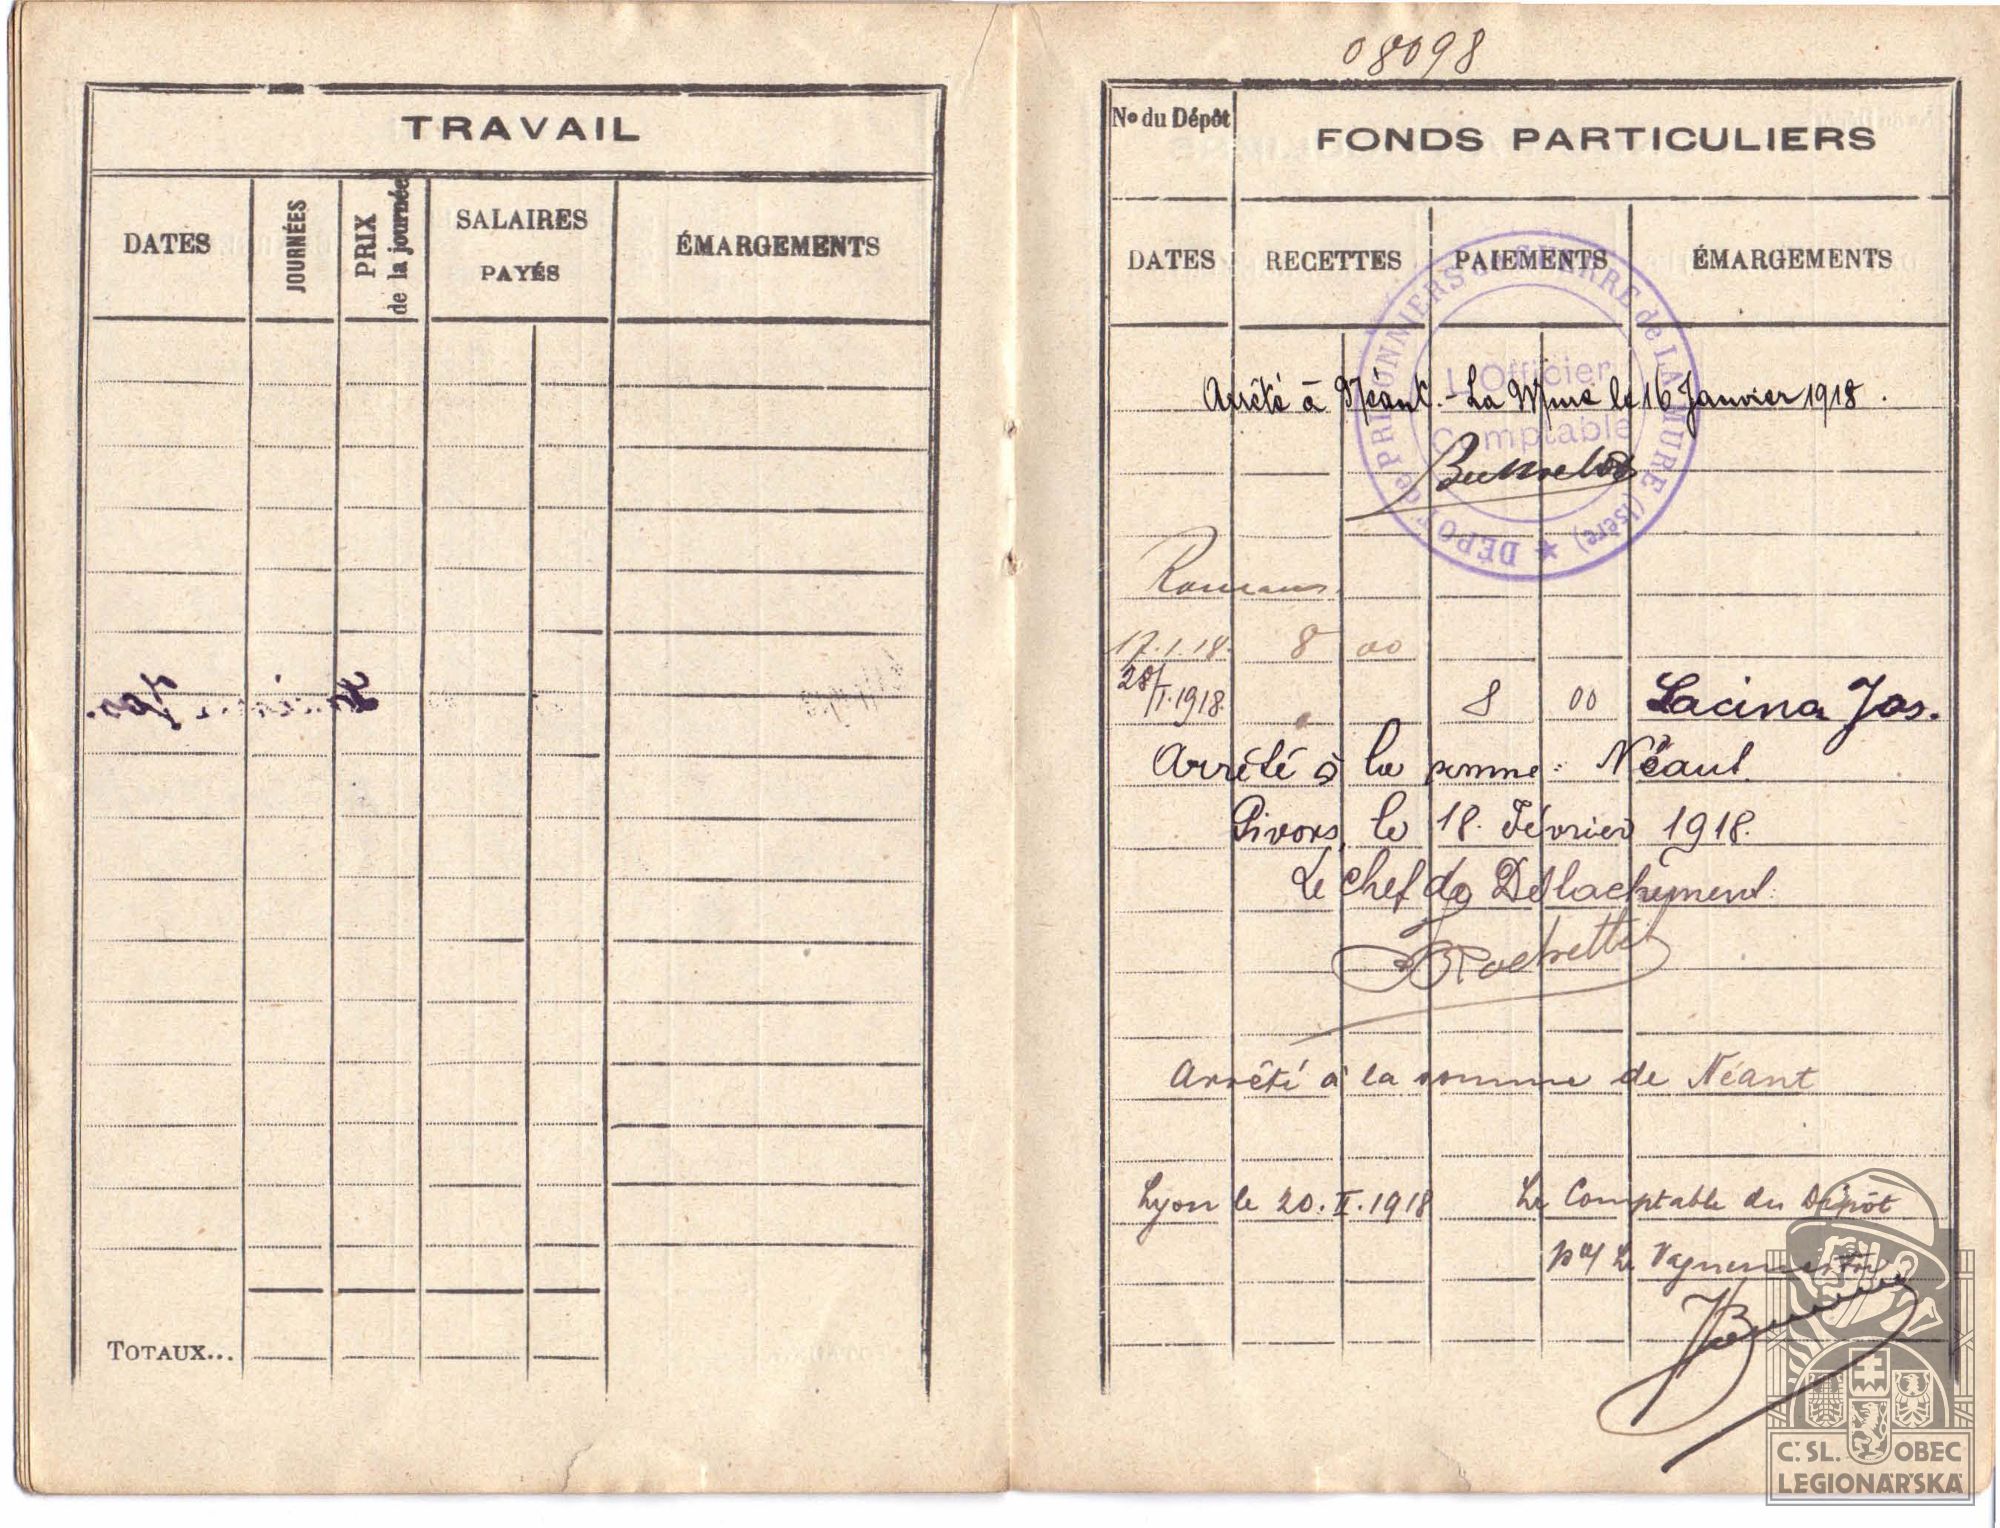 TRAVAIL
DATES
JOURNÉES
PRIX
de la journée
SALAIRES
PAYÉS
ÉMARGEMENTS
TOTAUX...
08098
No du Dépôt
FONDS PARTICULIERS
DATES
RECETTES
PAIEMENTS
ÉMARGEMENTS
DÉPÔT de PRISONNIERS de GUERRE de LA MURE (Isère) ★
L'Officier
Comptable
Arrêté à Néant. - La Mure le 16 Janvier 1918.
Romans.
17.1.18. 8 00
28/I.1918. 8 00 Lacina Jos.
Arrêté à la somme: Néant.
Givors, le 18. Février 1918.
Le Chef de Détachement:
Rochette
Arrêté à la somme de Néant
Lyon le 20.II.1918 Le Comptable du Dépôt
Le Vaguemestre
Č. SL. OBEC
LEGIONÁŘSKÁ